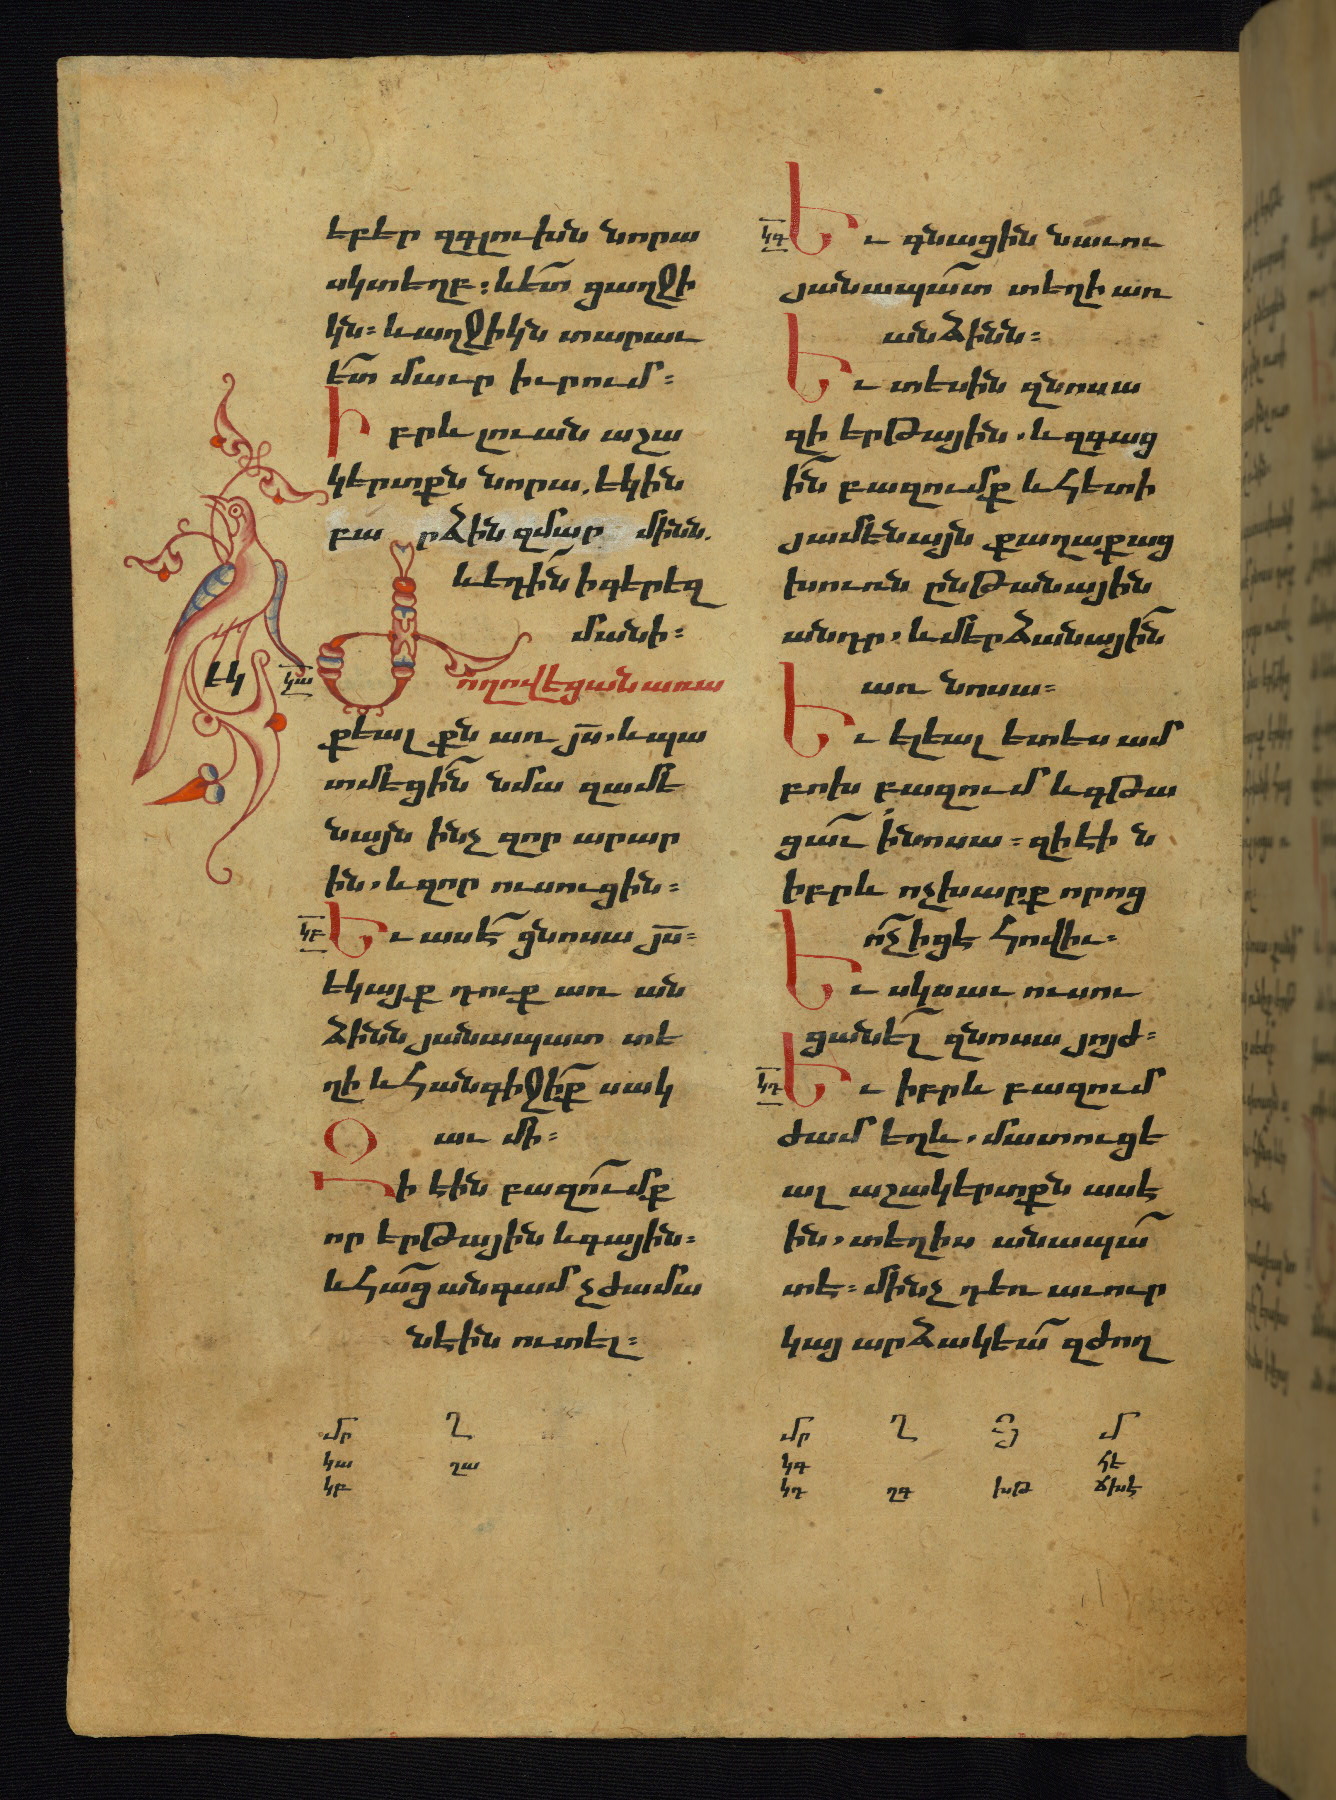 եբեր զգլուխն նորա
սկտեղբ։ և ետ ցաղջի
կն։ և աղջիկն տարաւ
ետ մաւր իւրում։
Իբրև լուան աշա
կերտքն նորա, եկին
բարձին զմարմինն.
և եդին ի գերեզ
մանի։
էկ կա Ժողովեցան առա
քեալքն առ յս. և պա
տմեցին նմա զամե
նայն ինչ զոր արար
ին. և զոր ուսուցին։
կբ Եւ ասէ ցնոսա յս։
եկայք դուք առ ան
ձինն յանապատ տե
ղի և հանգիջիք սակ
աւ մի։
Զի էին բազումք
որ երթային և գային։
և հաց անգամ չժամա
նէին ուտել։
կգ Եւ գնացին նաւու
յանապատ տեղի առ
անձինն։
Եւ տեսին զնոսա
զի երթային. և զգաց
ին բազումք և հետի
յամենայն քաղաքաց
խուռն ընթանային
անդր. և մերձանային
առ նոսա։
Եւ ելեալ ետես ամ
բոխ բազում և գթա
ցաւ ի նոսա։ զի էին
իբրև ոչխարք որոց
ոչ իցէ հովիւ։
Եւ սկսաւ ուսու
ցանել զնոսա յոյժ։
կդ Եւ իբրև բազում
ժամ եղև. մատուցե
ալ աշակերտքն ասէ
ին. տեղիս անապա
տ է։ մինչ դեռ աւուր
կայ արձակեա զժող
մր Ղ
կա ղա
կբ
մր Ղ Յ Մ
կգ հե
կդ ղգ խթ ճխէ